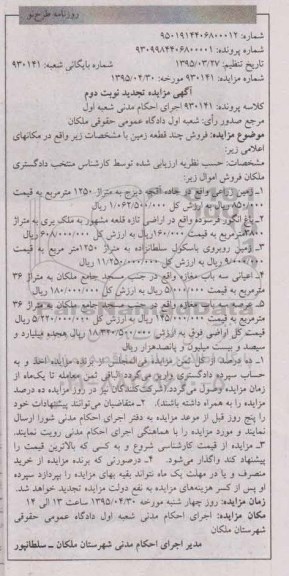 روزنامه طرح نو
شماره: ۹۵۰۱۹۱۴۴۰۶۸۰۰۰۱۲
شماره پرونده: ۹۳۰۹۹۸۴۴۰۶۸۰۰۰۰۱
تاریخ تنظیم: ۱۳۹۵/۰۳/۲۷ شماره بایگانی شعبه: ۹۳۰۱۴۱
شماره مزایده: ۹۳۰۱۴۱ مورخه: ۱۳۹۵/۰۴/۳۰
آگهی مزایده تجدید نوبت دوم
کلاسه پرونده: ۹۳۰۱۴۱ اجرای احکام مدنی شعبه اول
مرجع صدور رأی: شعبه اول دادگاه عمومی حقوقی ملکان
موضوع مزایده: فروش چند قطعه زمین با مشخصات زیر واقع در مکانهای
اعلامی زیر:
مشخصات: حسب نظریه ارزیابی شده توسط کارشناس منتخب دادگستری
ملکان فروش اموال زیر:
۱ـ زمین زراعی واقع در جاده آغچه دیزج به متراژ ۱۲۵۰ مترمربع به قیمت
۸۵۰/۰۰۰ ریال به ارزش کل ۱/۰۶۲/۵۰۰/۰۰۰ ریال
۲ـ باغ انگور فرسوده واقع در اراضی تازه قلعه مشهور به ملک پری به متراژ
۳۸۰۰ مترمربع به قیمت ۱۶۰/۰۰۰ ریال به ارزش کل ۶۰۸/۰۰۰/۰۰۰ ریال
۳ـ زمین روبروی باسکول سلطانزاده به متراژ ۱۲۵۰ متر مربع به قیمت
۹/۰۰۰/۰۰۰ ریال به ارزش کل ۱۱/۲۵۰/۰۰۰/۰۰۰ ریال
۴ـ اعیانی سه باب مغازه واقع در جنب مسجد جامع ملکان به متراژ ۳۶
مترمربع به قیمت ۵/۰۰۰/۰۰۰ ریال به ارزش کل ۱۸۰/۰۰۰/۰۰۰ ریال
۵ـ عرصه سه باب مغازه واقع در جنب مسجد جامع ملکان به متراژ ۳۶
مترمربع به قیمت ۱۴۵/۰۰۰/۰۰۰ ریال به ارزش کل ۵/۲۲۰/۰۰۰/۰۰۰ ریال
قیمت کل اراضی فوق به ارزش ۱۸/۳۲۰/۵۰۰/۰۰۰ ریال هجده میلیارد و
سیصد و بیست میلیون و پانصدهزار ریال
۱ـ ده درصد از کل ثمن مزایده فی‌المجلس از برنده مزایده اخذ و به
حساب سپرده دادگستری واریز می‌گردد (الباقی ثمن معامله تا یک‌ماه از
زمان مزایده وصول می‌گردد)(شرکت‌کنندگان نیز در روز مزایده ده درصد
مزایده را به همراه داشته باشند). ۲ـ متقاضیان می‌توانند پیشنهادات خود
را پنج روز قبل از موعد مزایده به دفتر اجرای احکام مدنی شورا ارسال
نمایند و مورد مزایده را با هماهنگی اجرای احکام مدنی رویت نمایند.
۳ـ مزایده از قیمت کارشناسی شروع و به کسی که بالاترین قیمت را
پیشنهاد کند واگذار می‌شود. ۴ـ درصورتی که برنده مزایده از خرید
منصرف و یا در مهلت یک ماه نتواند بقیه بهای مزایده را بپردازد سپرده
او پس از کسر هزینه‌های مزایده به نفع دولت مزایده تجدید خواهد شد.
زمان مزایده: روز چهار شنبه مورخه ۱۳۹۵/۰۴/۳۰ ساعت ۱۳ الی ۱۴
مکان مزایده: اجرای احکام مدنی شعبه اول دادگاه عمومی حقوقی
شهرستان ملکان
مدیر اجرای احکام مدنی شهرستان ملکان ـ سلطانپور